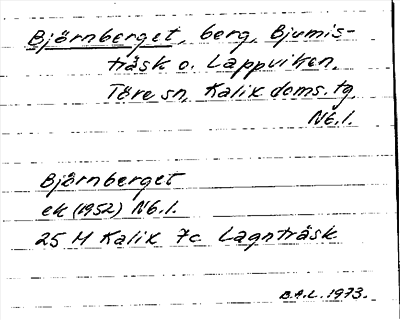 Björnberget, berg, Bjumis-
träsk o. Lappviken,
Töre sn, Kalix doms. tg
Nb.l.
Björnberget
ek (1952) Nb.l.
25 M Kalix 7c Lagnträsk
B.A.L. 1973.